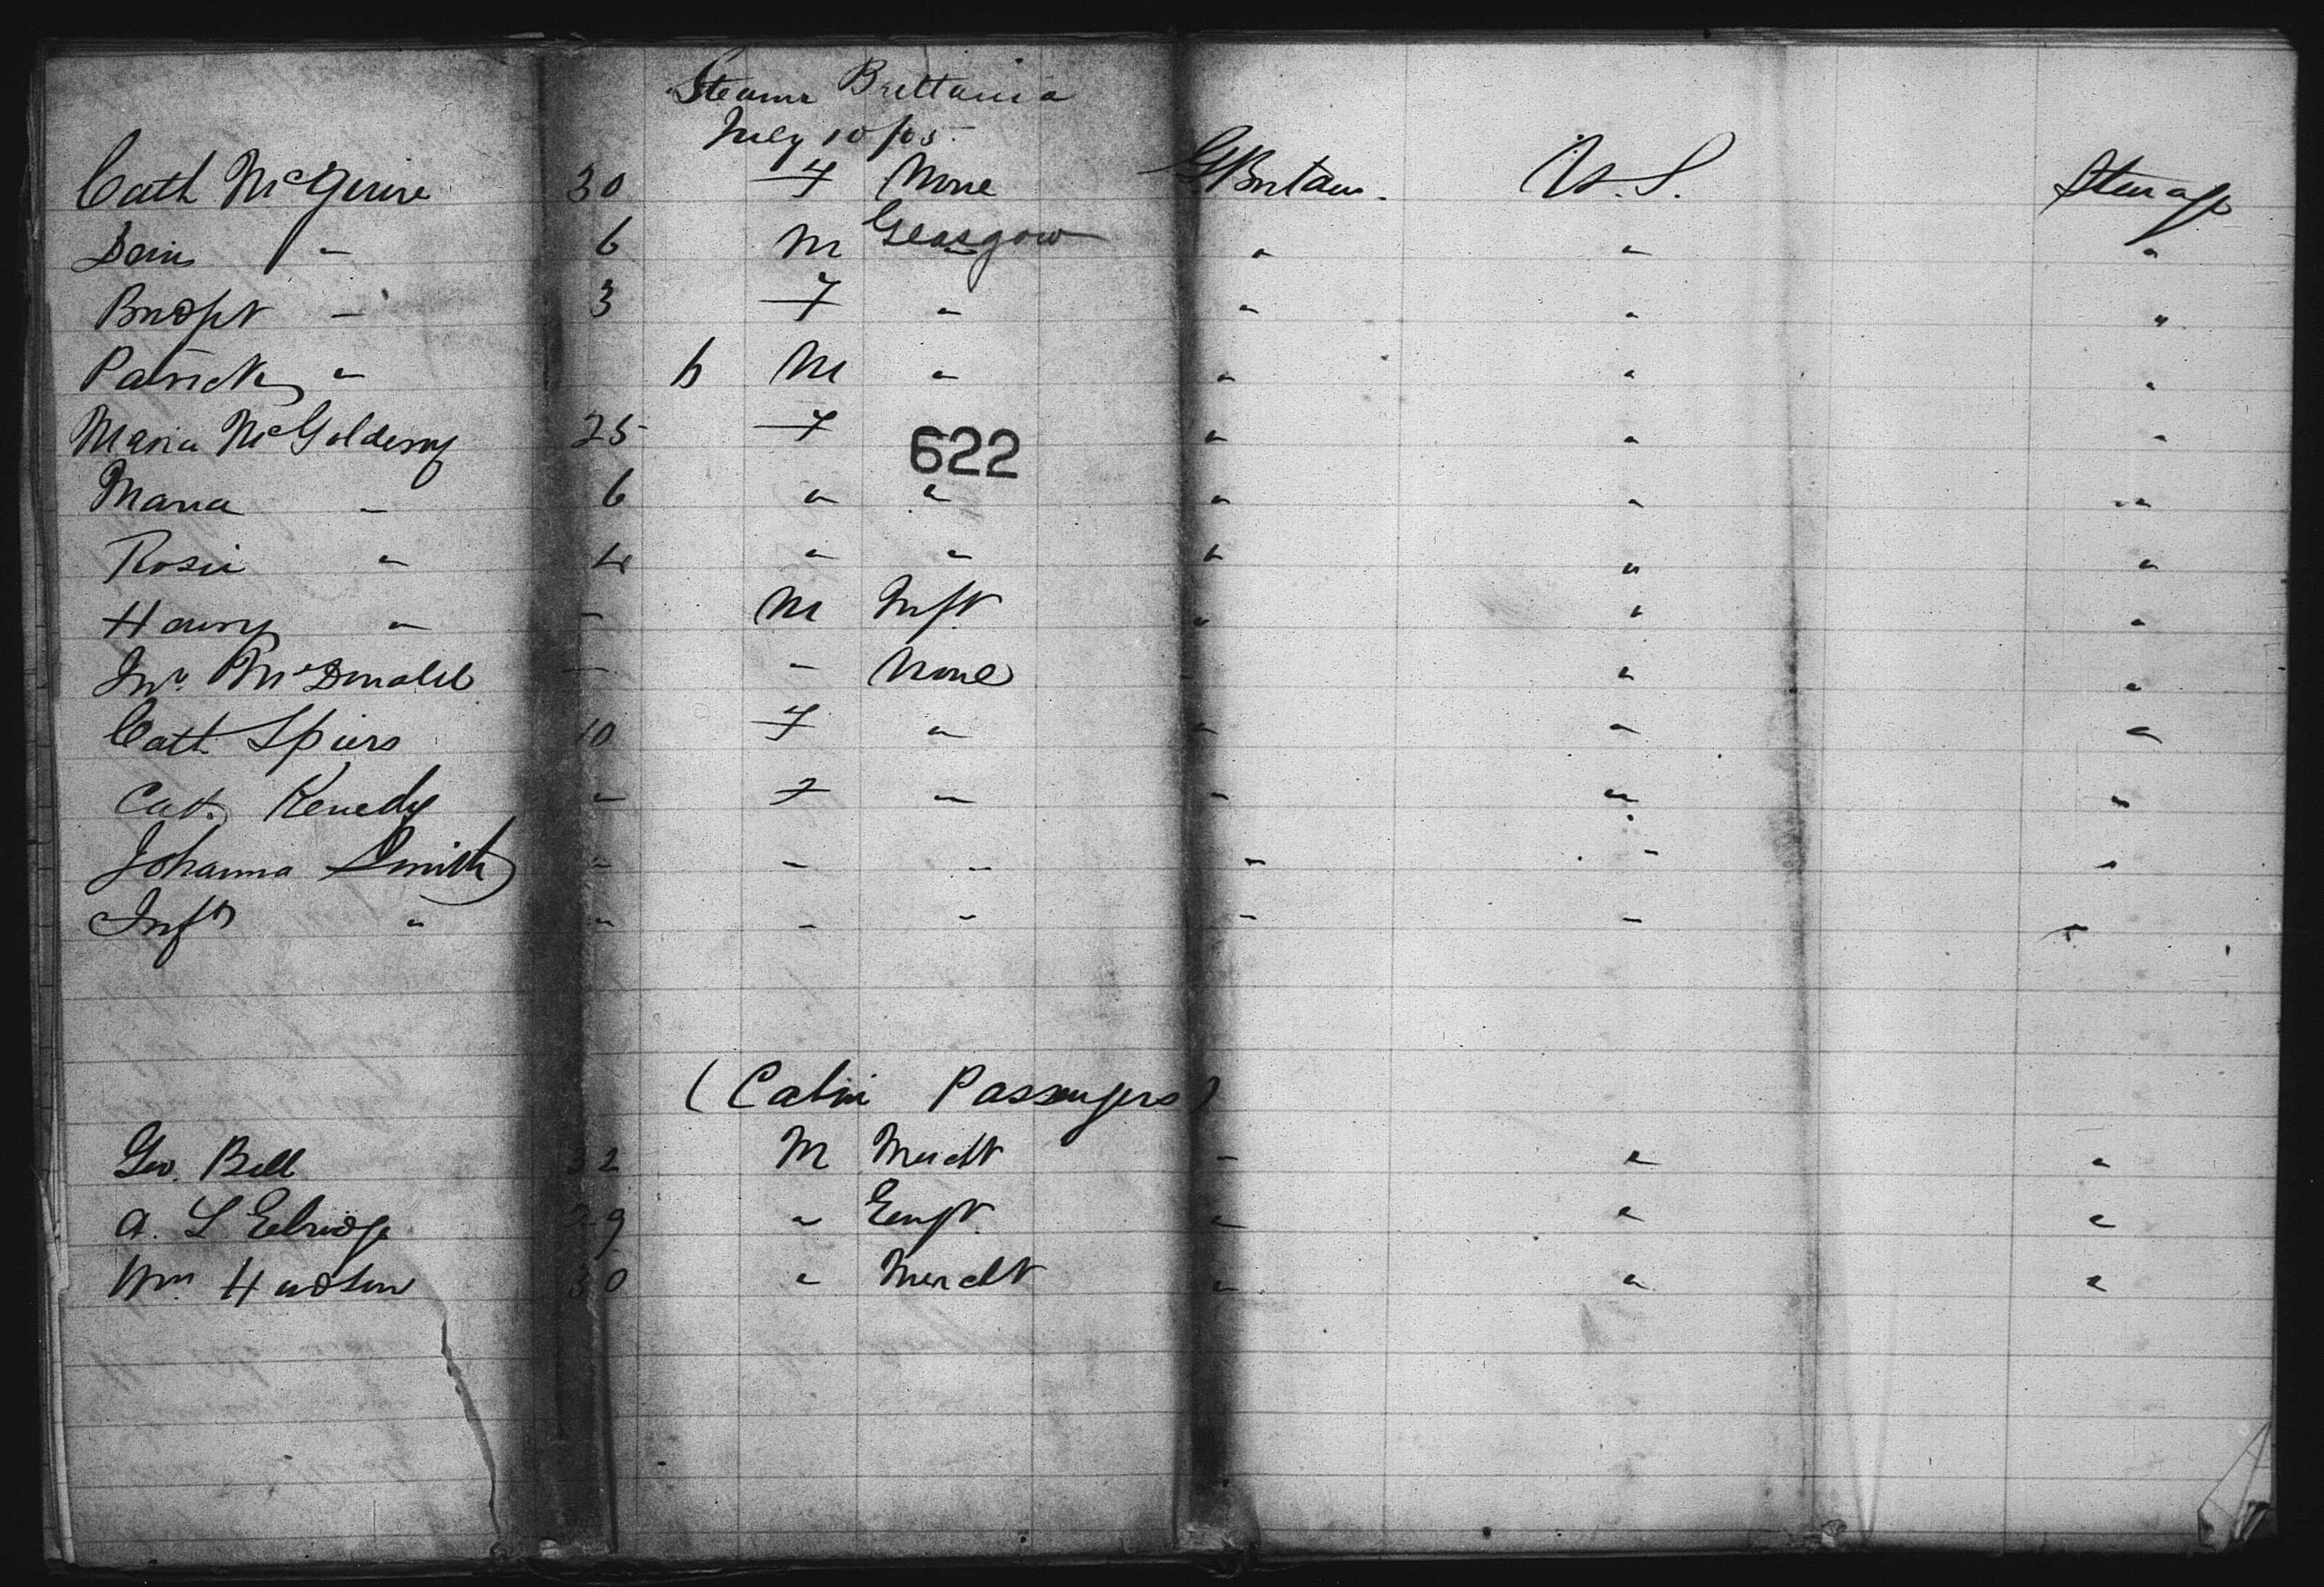 Steamr Brittania
July 10/65
Cath McGuire 30 F None GBritain. U.S. Steerage
" 6 M Glasgow " " "
Bridget " 3 F " " " "
Patrick " 6 M " " " "
Maria McGolderny 25 F " " "
622
Maria " 6 " " " " "
Rosie " 4 " " " " "
Henry " - M Inft " " "
Jno. McDonald - - None - " "
Cath Spiers 10 F " " " "
Cath Kenedy " F " " " "
Johanna Smith " " " " " "
Inft " " " " " " "
(Cabin Passengers)
Geo. Bell 32 M Mercht " " "
A. L Eelridge 29 " " " "
Wm Hudson 30 " Mercht " " "